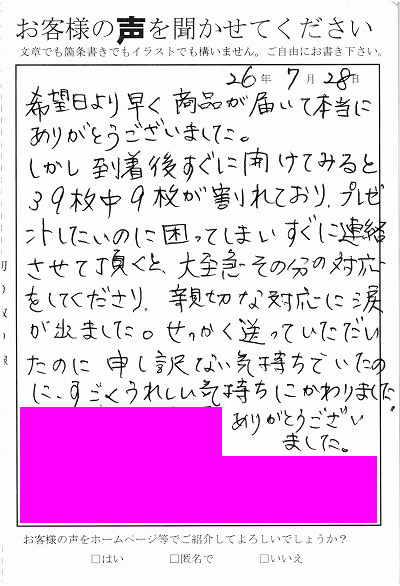 お客様の声を聞かせてください
文章でも箇条書きでもイラストでも構いません。ご自由にお書き下さい。
26年 7月 28日
希望日より早く商品が届いて本当に
ありがとうございました。
しかし到着後すぐに開けてみると
39枚中9枚が割れており、プレゼ
ントしたいのに困ってしまいすぐに連絡
させて頂くと、大至急その分の対応
をしてくださり、親切な対応に涙
が出ました。せっかく送っていただい
たのに申し訳ない気持ちでいたの
に、すごくうれしい気持ちにかわりました。
ありがとうござい
ました。
お客様の声をホームページ等でご紹介してよろしいでしょうか？
□はい □匿名で □いいえ